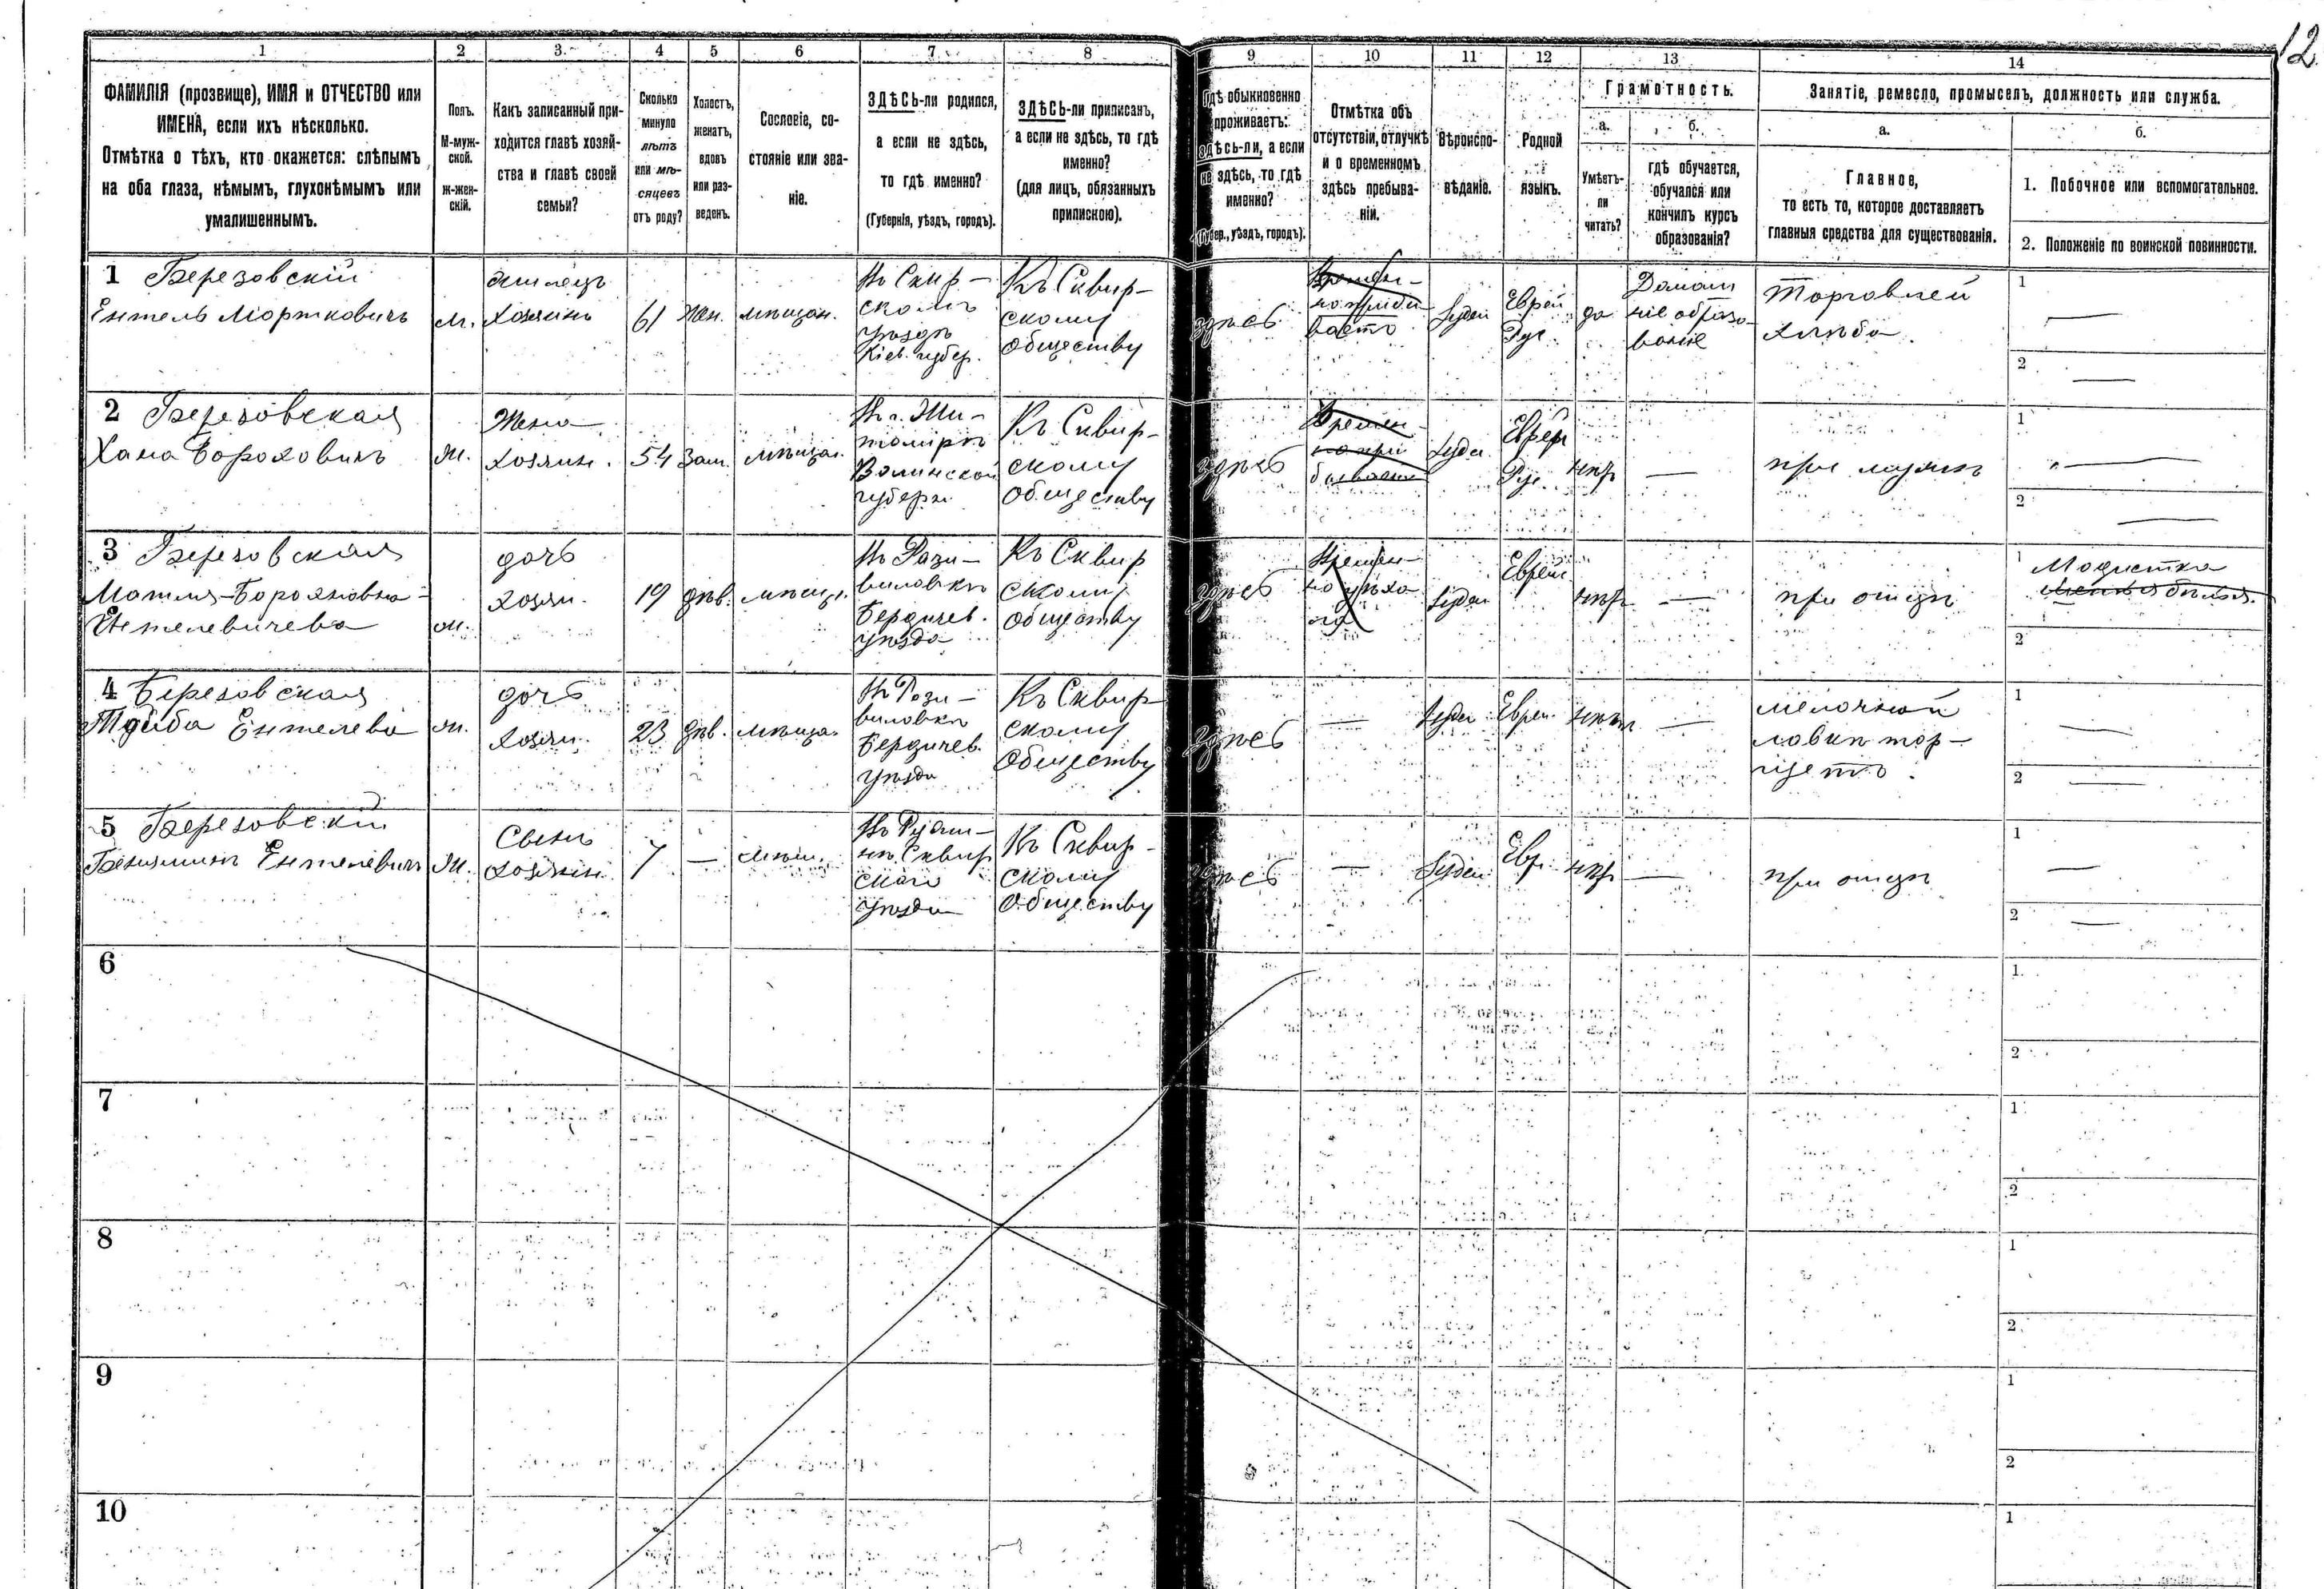 12
1
2
3.
4
5
6
7
8
9
10
11
12
13
14
ФАМИЛІЯ (прозвище), ИМЯ и ОТЧЕСТВО или
ИМЕНА, если ихъ нѣсколько.
Отмѣтка о тѣхъ, кто окажется: слѣпымъ
на оба глаза, нѣмымъ, глухонѣмымъ или
умалишеннымъ.
Полъ.
М-муж-
ской.
Ж-жен-
скій.
Какъ записанный при-
ходится главѣ хозяй-
ства и главѣ своей
семьи?
Сколько
минуло
лѣтъ
или мѣ-
сяцевъ
отъ роду?
Холостъ,
женатъ,
вдовъ
или раз-
веденъ.
Сословіе, со-
стояніе или зва-
ніе.
ЗДѢСЬ-ли родился,
а если не здѣсь,
то гдѣ именно?
(Губернія, уѣздъ, городъ).
ЗДѢСЬ-ли приписанъ,
а если не здѣсь, то гдѣ
именно?
(для лицъ, обязанныхъ
припискою).
Гдѣ обыкновенно
проживаетъ:
здѣсь-ли, а если
не здѣсь, то гдѣ
именно?
(Губер., уѣздъ, городъ).
Отмѣтка объ
отсутствіи, отлучкѣ
и о временномъ
здѣсь пребыва-
ніи.
Вѣроиспо-
вѣданіе.
Родной
языкъ.
Грамотность.
а.
Умѣетъ-
ли
читать?
б.
гдѣ обучается,
обучался или
кончилъ курсъ
образованія?
Занятіе, ремесло, промыселъ, должность или служба.
а.
Главное,
то есть то, которое доставляетъ
главныя средства для существованія.
б.
1. Побочное или вспомогательное.
2. Положеніе по воинской повинности.
1 Березовскій
Ентель Мортковичъ
м.
Хозяинъ
61
Жен.
мѣщан.
Въ Сквир-
скомъ
уѣздѣ
Кіев. губер.
Къ Сквир-
скому
обществу
здѣсь
Іудей
Еврей
да
Домаш
ніе образо
ваніе
Торговлей
хлѣба.
1
2
2 Березовская
Хана Бороховичъ
Ж.
Жена
хозяин.
54
Зам.
мѣщан.
Въ г. Жи-
томирѣ
Волинской
губерн
Къ Сквир-
скому
обществу
здѣсь
Іудей
Еврей
нѣт
при мужѣ
1
2
3 Березовская
Ентелевичева
ж.
дочь
хозяи.
19
дѣв.
мѣщ.
Бердичев.
уѣзда
Къ Сквир
скому
обществу
здѣсь
Іудей
Еврей
нѣт
при отцѣ
1
Модистка
2
4 Березовская
Ентелева
Ж.
дочь
хозяи.
23
дѣв.
мѣща.
Бердичев.
уѣзда
Къ Сквир
скому
обществу
здѣсь
Іудей
Еврей
нѣт
мелочной
лавки тор-
гуетъ.
1
2
5 Березовскій
Беньяминъ Ентелевичъ
М.
Сынъ
хозяин
7
мѣщ.
Сквир
скаго
уѣзда
Къ Сквир-
скому
обществу
здѣсь
Іудей
Евр.
нѣт
при отцѣ
1
2
6
1
2
7
1
2
8
1
2
9
1
2
10
1